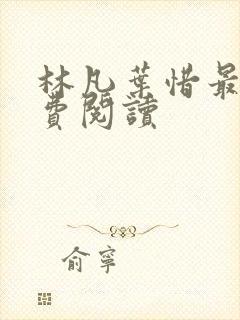 林凡葉惜最
費閱讀
俞寧